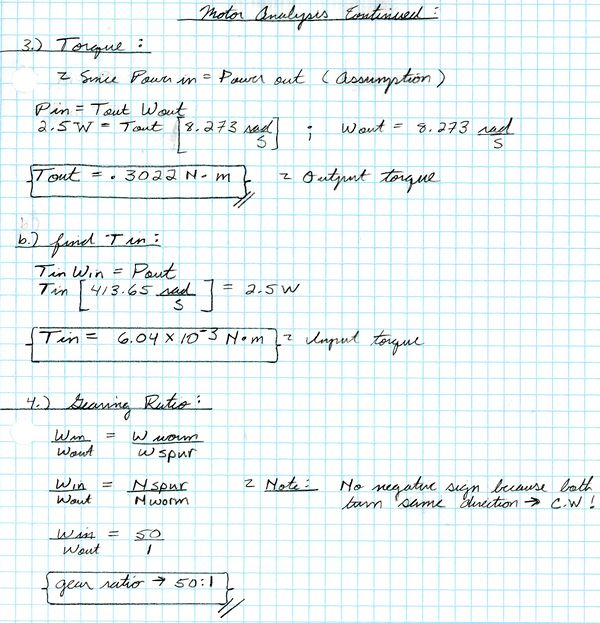 Motor Analysis Continued:
3.) Torque:
Since Power in = Power out (Assumption)
Pin = Tout Wout
2.5W = Tout [8.273 rad/s] ; Wout = 8.273 rad/s
Tout = .3022 N·m = Output torque
b.) find Tin:
Tin Win = Pout
Tin [413.65 rad/s] = 2.5W
Tin = 6.04 × 10⁻³ N·m = Input torque
4.) Gearing Ratio:
Win/Wout = Wworm/Wspur
Win/Wout = Nspur/Nworm Note: No negative sign because both
turn same direction → C.W!
Win/Wout = 50/1
gear ratio → 50:1